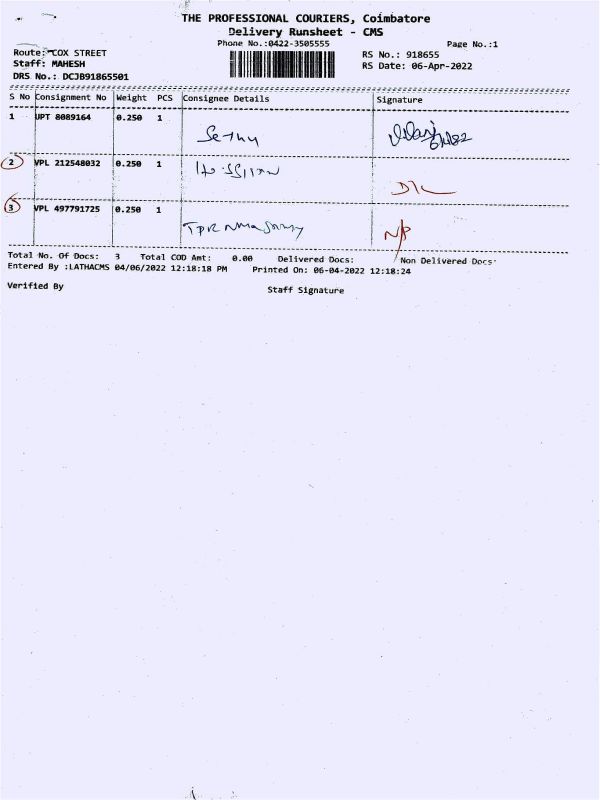 THE PROFESSIONAL COURIERS, Coimbatore
Delivery Runsheet - CMS
Phone No.:0422-3505555 Page No.:1
Route: COX STREET RS No.: 918655
Staff: MAHESH RS Date: 06-Apr-2022
DRS No.: DCJB91865501
S No Consignment No Weight PCS Consignee Details Signature
1 UPT 8089164 0.250 1
Sethu
2 VPL 212548032 0.250 1
D/L
3 VPL 497791725 0.250 1
TPR N/P
Total No. Of Docs: 3 Total COD Amt: 0.00 Delivered Docs: Non Delivered Docs:
Entered By :LATHACMS 04/06/2022 12:18:18 PM Printed On: 06-04-2022 12:18:24
Verified By Staff Signature